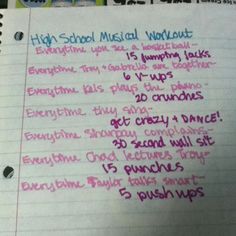 High School Musical Workout
Everytime you see a basketball-
15 jumping jacks
Everytime Troy + Gabriella are together-
6 V-ups
Everytime Kelsi plays the piano-
20 crunches
Everytime they sing-
get crazy + DANCE!
Everytime Sharpay complains-
30 second wall sit
Everytime Chad lectures Troy-
15 punches
Everytime Taylor talks smart-
5 pushups